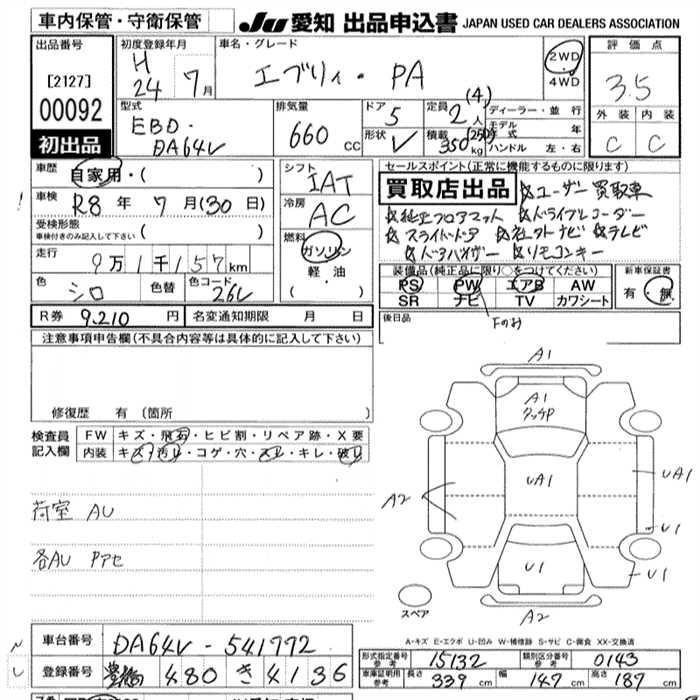 車内保管・守衛保管
JU 愛知 出品申込書 JAPAN USED CAR DEALERS ASSOCIATION
出品番号
[2127]
00092
初出品
初度登録年月
H 24 7月
車名・グレード
エブリィ・PA
2WD
4WD
評価点
3.5
外装 内装
C C
型式
EBD-
DA64V
排気量
660 cc
ドア 5
形状 V
定員 2人 (4)
積載 350 (250) kg
ディーラー・並行
モデル年式 年
ハンドル 左・右
車歴 自家用・( )
車検 R8年 7月(30日)
受検形態
車検付きのみ記入して下さい ( )
走行 9万1千157km
色 シロ 色替 色コード 26U
シフト IAT
冷房 AC
燃料
ガソリン
軽油
( ・ )
セールスポイント(正常に機能するものに限ります)
買取店出品 ☆ユーザー買取車
☆純正フロアマット ☆ドライブレコーダー
☆スライドドア ☆社外ナビ ☆テレビ
☆ドアバイザー ☆リモコンキー
装備品(純正品に限り○をつけてください)
PS PW エアB AW
SR ナビ TV カワシート
Fのみ
新車保証書
有・無
R券 9,210 円 名変通知期限 月 日
後日品
注意事項申告欄(不具合内容等は具体的に記入して下さい)
修復歴 有 (箇所 )
検査員記入欄
FW キズ・飛石・ヒビ割・リペア跡・X要
内装 キズ・汚れ・コゲ・穴・スレ・キレ・破れ
荷室 AU
各AU Pアセ
A1
A1
タッチP
UA1
UA1
A2
U1
U1
U1
A2
スペア
A-キズ E-エクボ U-凹み W-補修跡 S-サビ C-腐食 XX-交換済
車台番号 DA64V-541772
登録番号 豊橋 480 き 4136
形式指定番号 参考 15132 類別区分番号 参考 0143
車庫証明用 参考 長さ 339 cm 幅 147 cm 高さ 187 cm